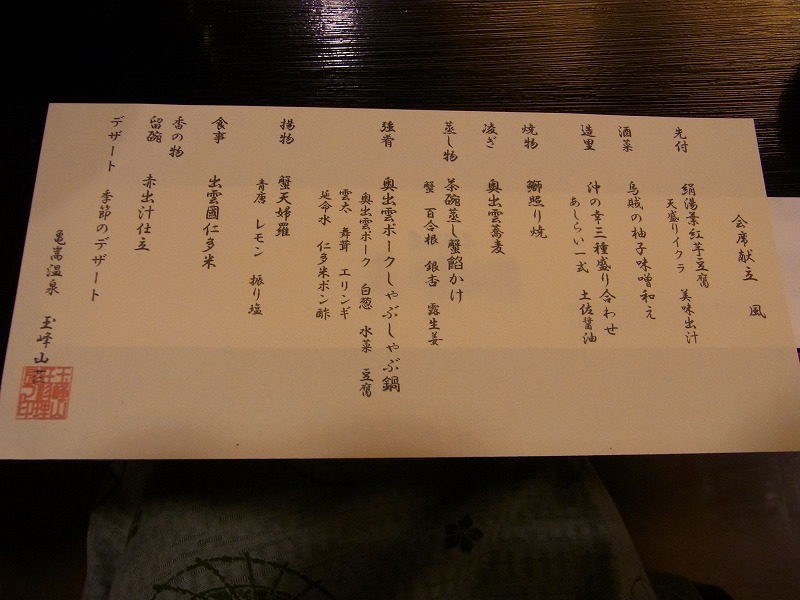 会席献立 風
先付 絹湯葉紅芋豆腐
天盛りイクラ 美味出汁
酒菜 烏賊の柚子味噌和え
造里 沖の幸三種盛り合わせ
あしらい一式 土佐醤油
焼物 鰤照り焼
凌ぎ 奥出雲蕎麦
蒸し物 茶碗蒸し蟹餡かけ
蟹 百合根 銀杏 露生姜
強肴 奥出雲ポークしゃぶしゃぶ鍋
奥出雲ポーク 白葱 水菜 豆腐
雲太 舞茸 エリンギ
延命水 仁多米ポン酢
揚物 蟹天婦羅
青唐 レモン 振り塩
食事 出雲國仁多米
香の物
留碗 赤出汁仕立
デザート 季節のデザート
亀嵩温泉 玉峰山荘